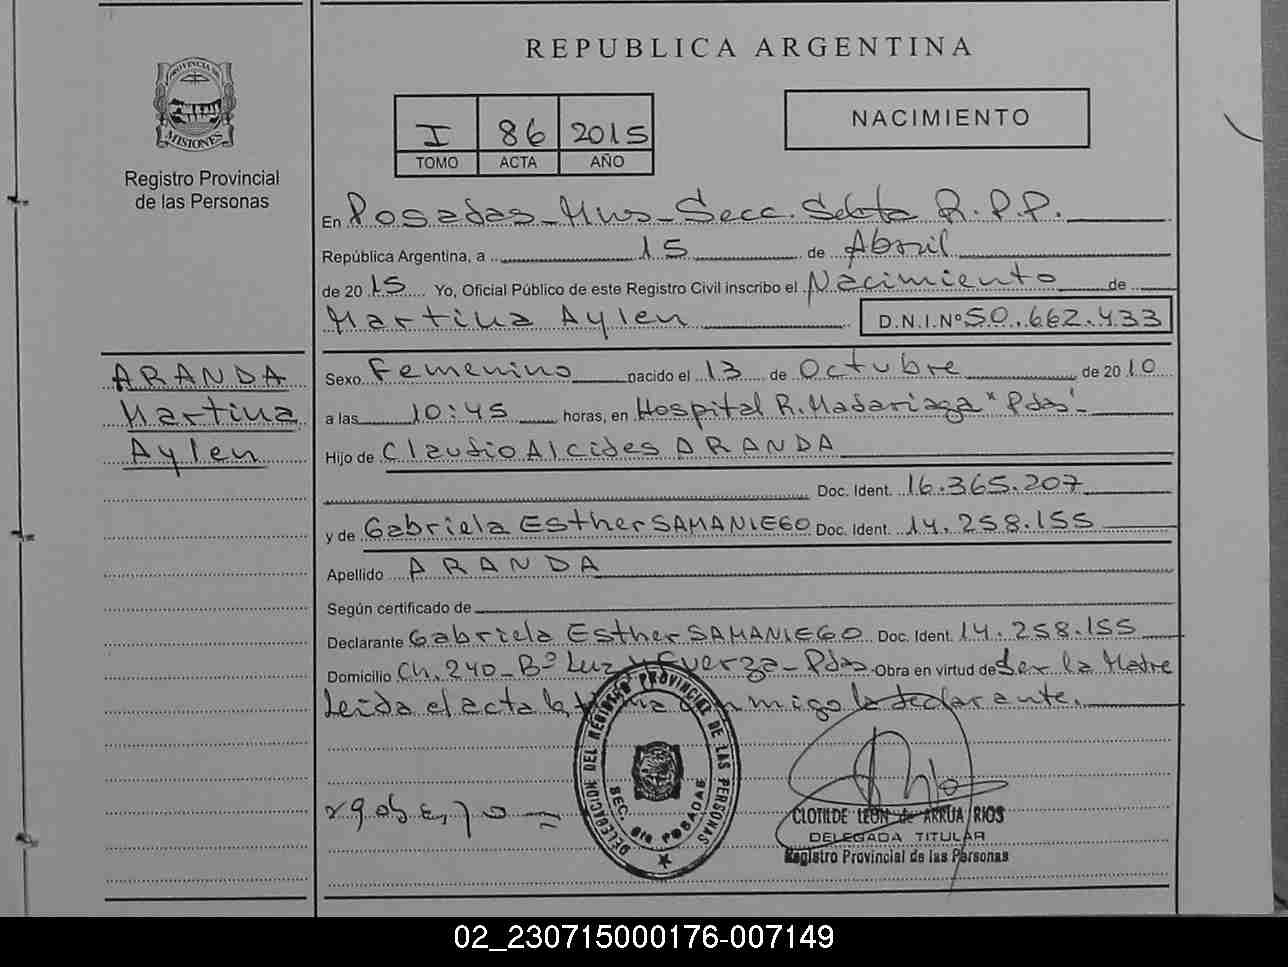 REPUBLICA ARGENTINA
PROVINCIA DE
MISIONES
Registro Provincial
de las Personas
I 86 2015
TOMO ACTA AÑO
NACIMIENTO
En Posadas - Mnes - Secc. Sexta R.P.P.
República Argentina, a 15 de Abril
de 2015 Yo, Oficial Público de este Registro Civil inscribo el Nacimiento de
Martina Aylen D.N.I.Nº 50.662.433
ARANDA
Martina
Aylen
Sexo Femenino nacido el 13 de Octubre de 2010
a las 10:45 horas, en Hospital R. Madariaga "Pdas"-
Hijo de Claudio Alcides ARANDA
Doc. Ident. 16.365.207
y de Gabriela Esther SAMANIEGO Doc. Ident. 14.258.155
Apellido ARANDA
Según certificado de
Declarante Gabriela Esther SAMANIEGO Doc. Ident. 14.258.155
Domicilio Ch. 240 - Bº Luz y Fuerza - Pdas Obra en virtud de Ser la Madre
Leida el acta la firma conmigo la declarante.
DELEGACION DEL REGISTRO PROVINCIAL DE LAS PERSONAS
SEC. 6ta POSADAS
CLOTILDE LEON de ARRUA RIOS
DELEGADA TITULAR
Registro Provincial de las Personas
02_230715000176-007149